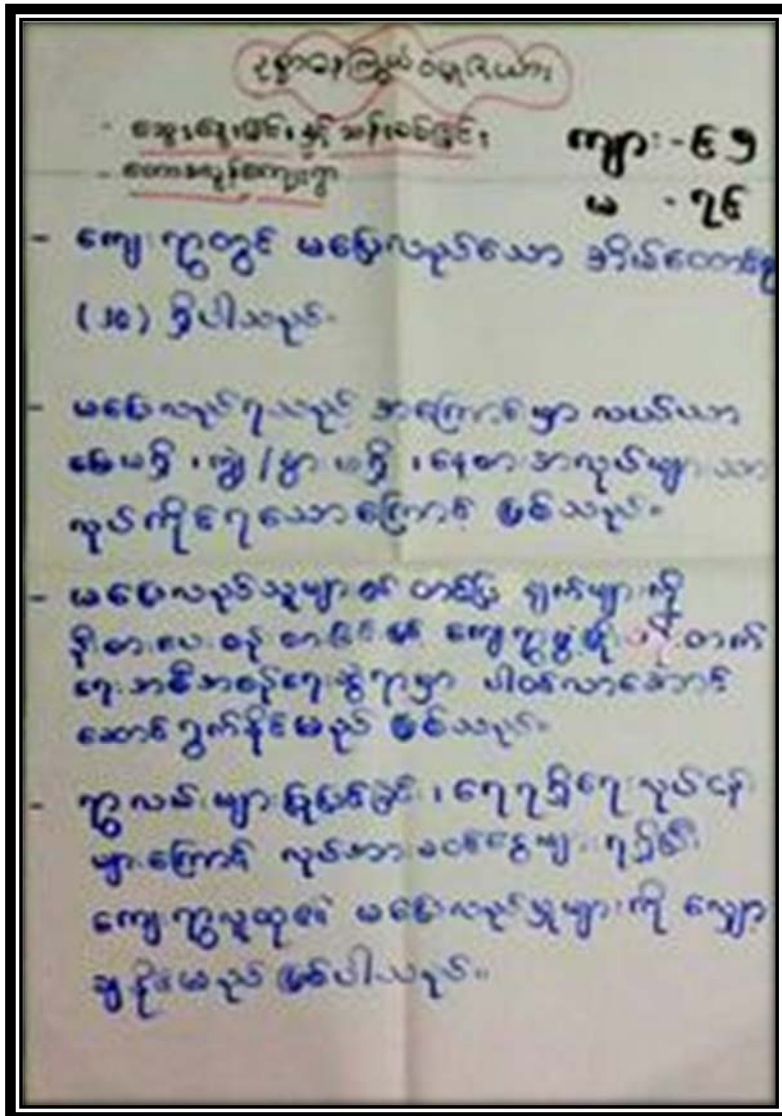 ဥစ္စာဓနကြွယ်ဝမှုဒီယာ
- ဆွေးနွေးခြင်းနှင့် သန်းစစ်ခြင်း
ကျား - ၆၅
- ကျေးရွာ
မ - ၇၆
- ကျေးရွာတွင် မပြေလည်သော အိမ်ထောင်စု
ရှိပါသည်။
- မပြေလည်ရသည့် အကြောင်မှာ လယ်ယာ
မြေမရှိ ၊ ကျွဲ/နွား မရှိ ၊ နေ့စားအလုပ်များသာ
လုပ်ကိုင်ရသောကြောင့် ဖြစ်သည်။
- မပြေလည်သူများ၏ တင်ပြ ချက်များကို
ကျေးရွာဖွံ့ဖြိုး တက်
ရေးအစီအစဉ်ရေးဆွဲရာမှာ ပါဝင်လာအောင်
ဆောင်ရွက်နိုင်မည် ဖြစ်သည်။
- ရွာလမ်းများပြုပြင်ခြင်း ၊ ရေရရှိရေးလုပ်ငန်း
များကြောင့် လုပ်အားခဝင်ငွေများရရှိ၍
ကျေးရွာလူထု၏ မပြေလည်မှုများကို လျှော့
ချနိုင်မည် ဖြစ်ပါသည်။